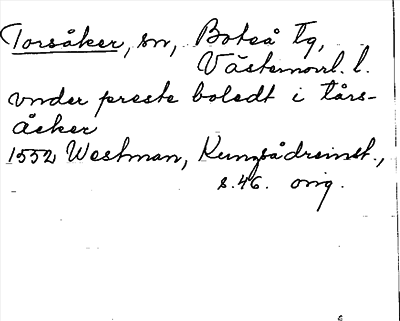 Torsåker, sn, Boteå tg,
Västernorrl. l.
vnder preste boledt i tårs-
åker
1552 Westman, Kungsådreinst.,
s. 46. orig.